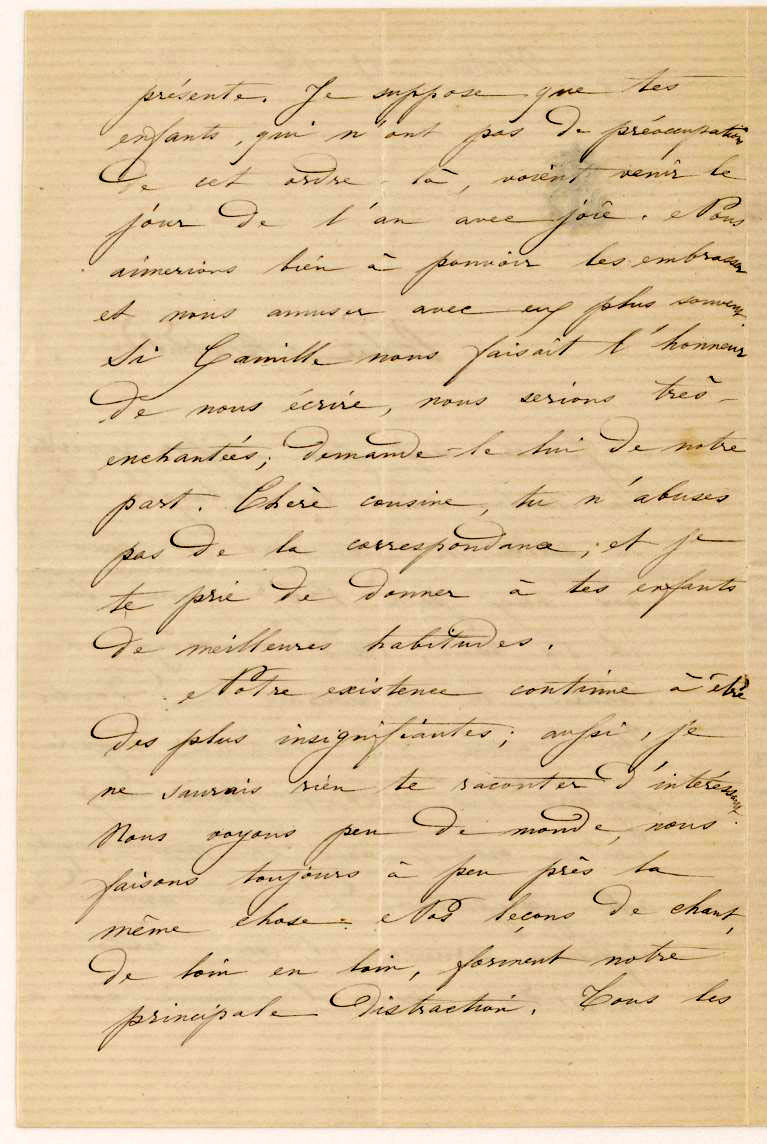 présente. Je suppose que tes
enfants, qui n'ont pas de préoccupation
de cet ordre-là, voient venir le
jour de l'an avec joie. Nous
aimerions bien à pouvoir les embrasser
et nous amuser avec eux plus souvent.
Si Camille nous faisait l'honneur
de nous écrire, nous serions très-
enchantées; demande-le lui de notre
part. Chère cousine, tu n'abuses
pas de la correspondance; et je
te prie de donner à tes enfants
de meilleures habitudes.
Notre existence continue à être
des plus insignifiantes; aussi, je
ne saurais rien te raconter d'intéressant.
Nous voyons peu de monde, nous
faisons toujours à peu près la
même chose. Nos leçons de chant,
de loin en loin, forment notre
principale distraction. Tous les